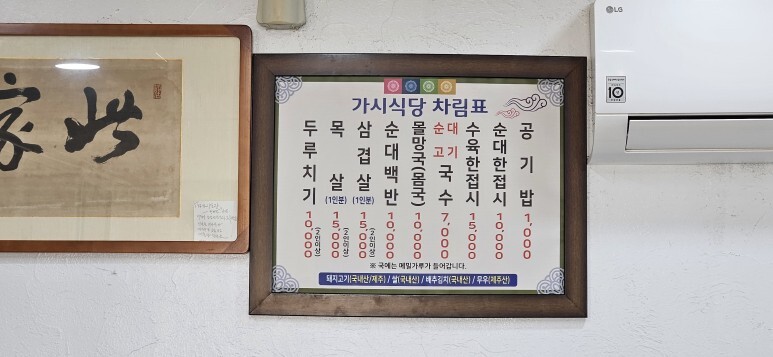 가시식당 차림표
두루치기 10,000 (2인이상)
목살 (1인분) 15,000 (2인이상)
삼겹살 (1인분) 15,000 (2인이상)
순대백반 10,000
몰망국(몸국) 10,000
순대고기국수 7,000
수육한접시 15,000
순대한접시 10,000
공기밥 1,000
※ 국에는 메밀가루가 들어갑니다.
돼지고기(국내산/제주) / 쌀(국내산) / 배추김치(국내산) / 무우(제주산)
LG
10